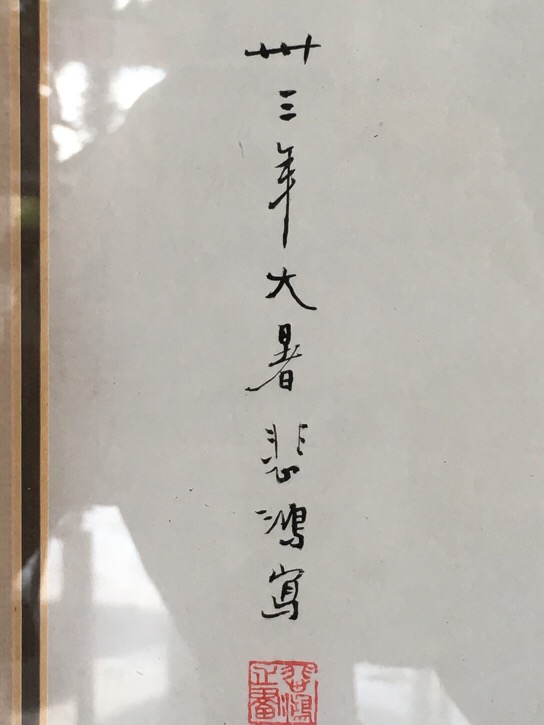 卅三年大暑悲鴻寫
悲鴻之畫